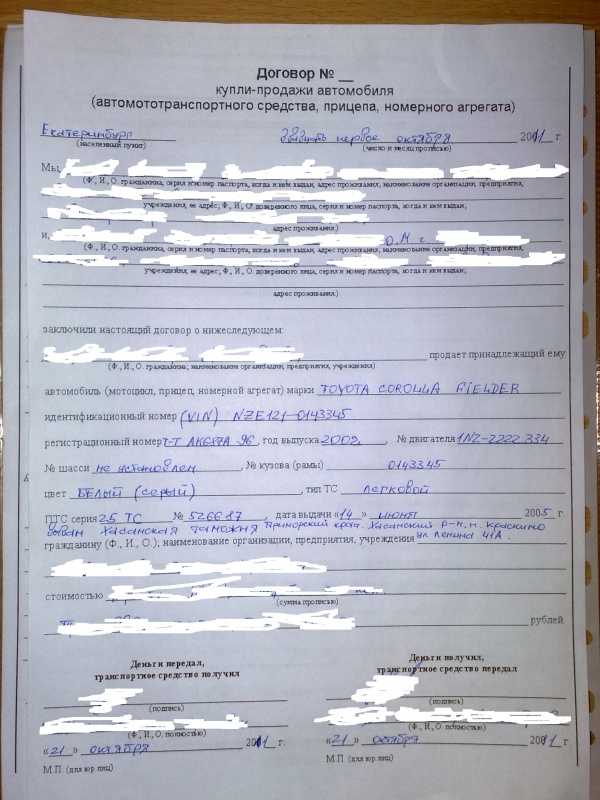 Договор № __
купли-продажи автомобиля
(автомототранспортного средства, прицепа, номерного агрегата)
Екатеринбург двадцать первое октября 2011 г.
(населенный пункт) (число и месяц прописью)
Мы,
(Ф., И., О. гражданина, серия и номер паспорта, когда и кем выдан, адрес проживания, наименование организации, предприятия,
учреждения, ее адрес, Ф., И., О. доверенного лица, серия и номер паспорта, когда и кем выдан,
адрес проживания.)
и,
(Ф., И., О. гражданина, серия и номер паспорта, когда и кем выдан, адрес проживания, наименование организации, предприятия,
учреждения, ее адрес, Ф., И., О. доверенного лица, серия и номер паспорта, когда и кем выдан,
адрес проживания.)
заключили настоящий договор о нижеследующем:
продает принадлежащий ему
(Ф., И., О. гражданина, наименование организации, предприятия, учреждения)
автомобиль (мотоцикл, прицеп, номерной агрегат) марки TOYOTA COROLLA FIELDER
идентификационный номер (VIN) NZE121-0143345
регистрационный номер Т-Т АК617А 96, год выпуска 2002, № двигателя 1NZ-2222 334
№ шасси не установлен, № кузова (рамы) 0143345
цвет БЕЛЫЙ (серый), тип ТС легковой
ПТС серия 25 ТС № 526687, дата выдачи «14» июня 2005 г.
выдан Хасанская таможня Приморский край. Хасанский р-н, п. Краскино
гражданину (Ф., И., О.), наименование организации, предприятия, учреждения ул Ленина 41А.
стоимостью
(сумма прописью)
рублей
Деньги передал,
транспортное средство получил
Деньги получил,
транспортное средство передал
(подпись) (подпись)
(Ф., И., О. полностью) (Ф., И., О. полностью)
«21» октября 2011 г. «21» октября 2011 г.
М.П. (для юр.лиц) М.П. (для юр.лиц)